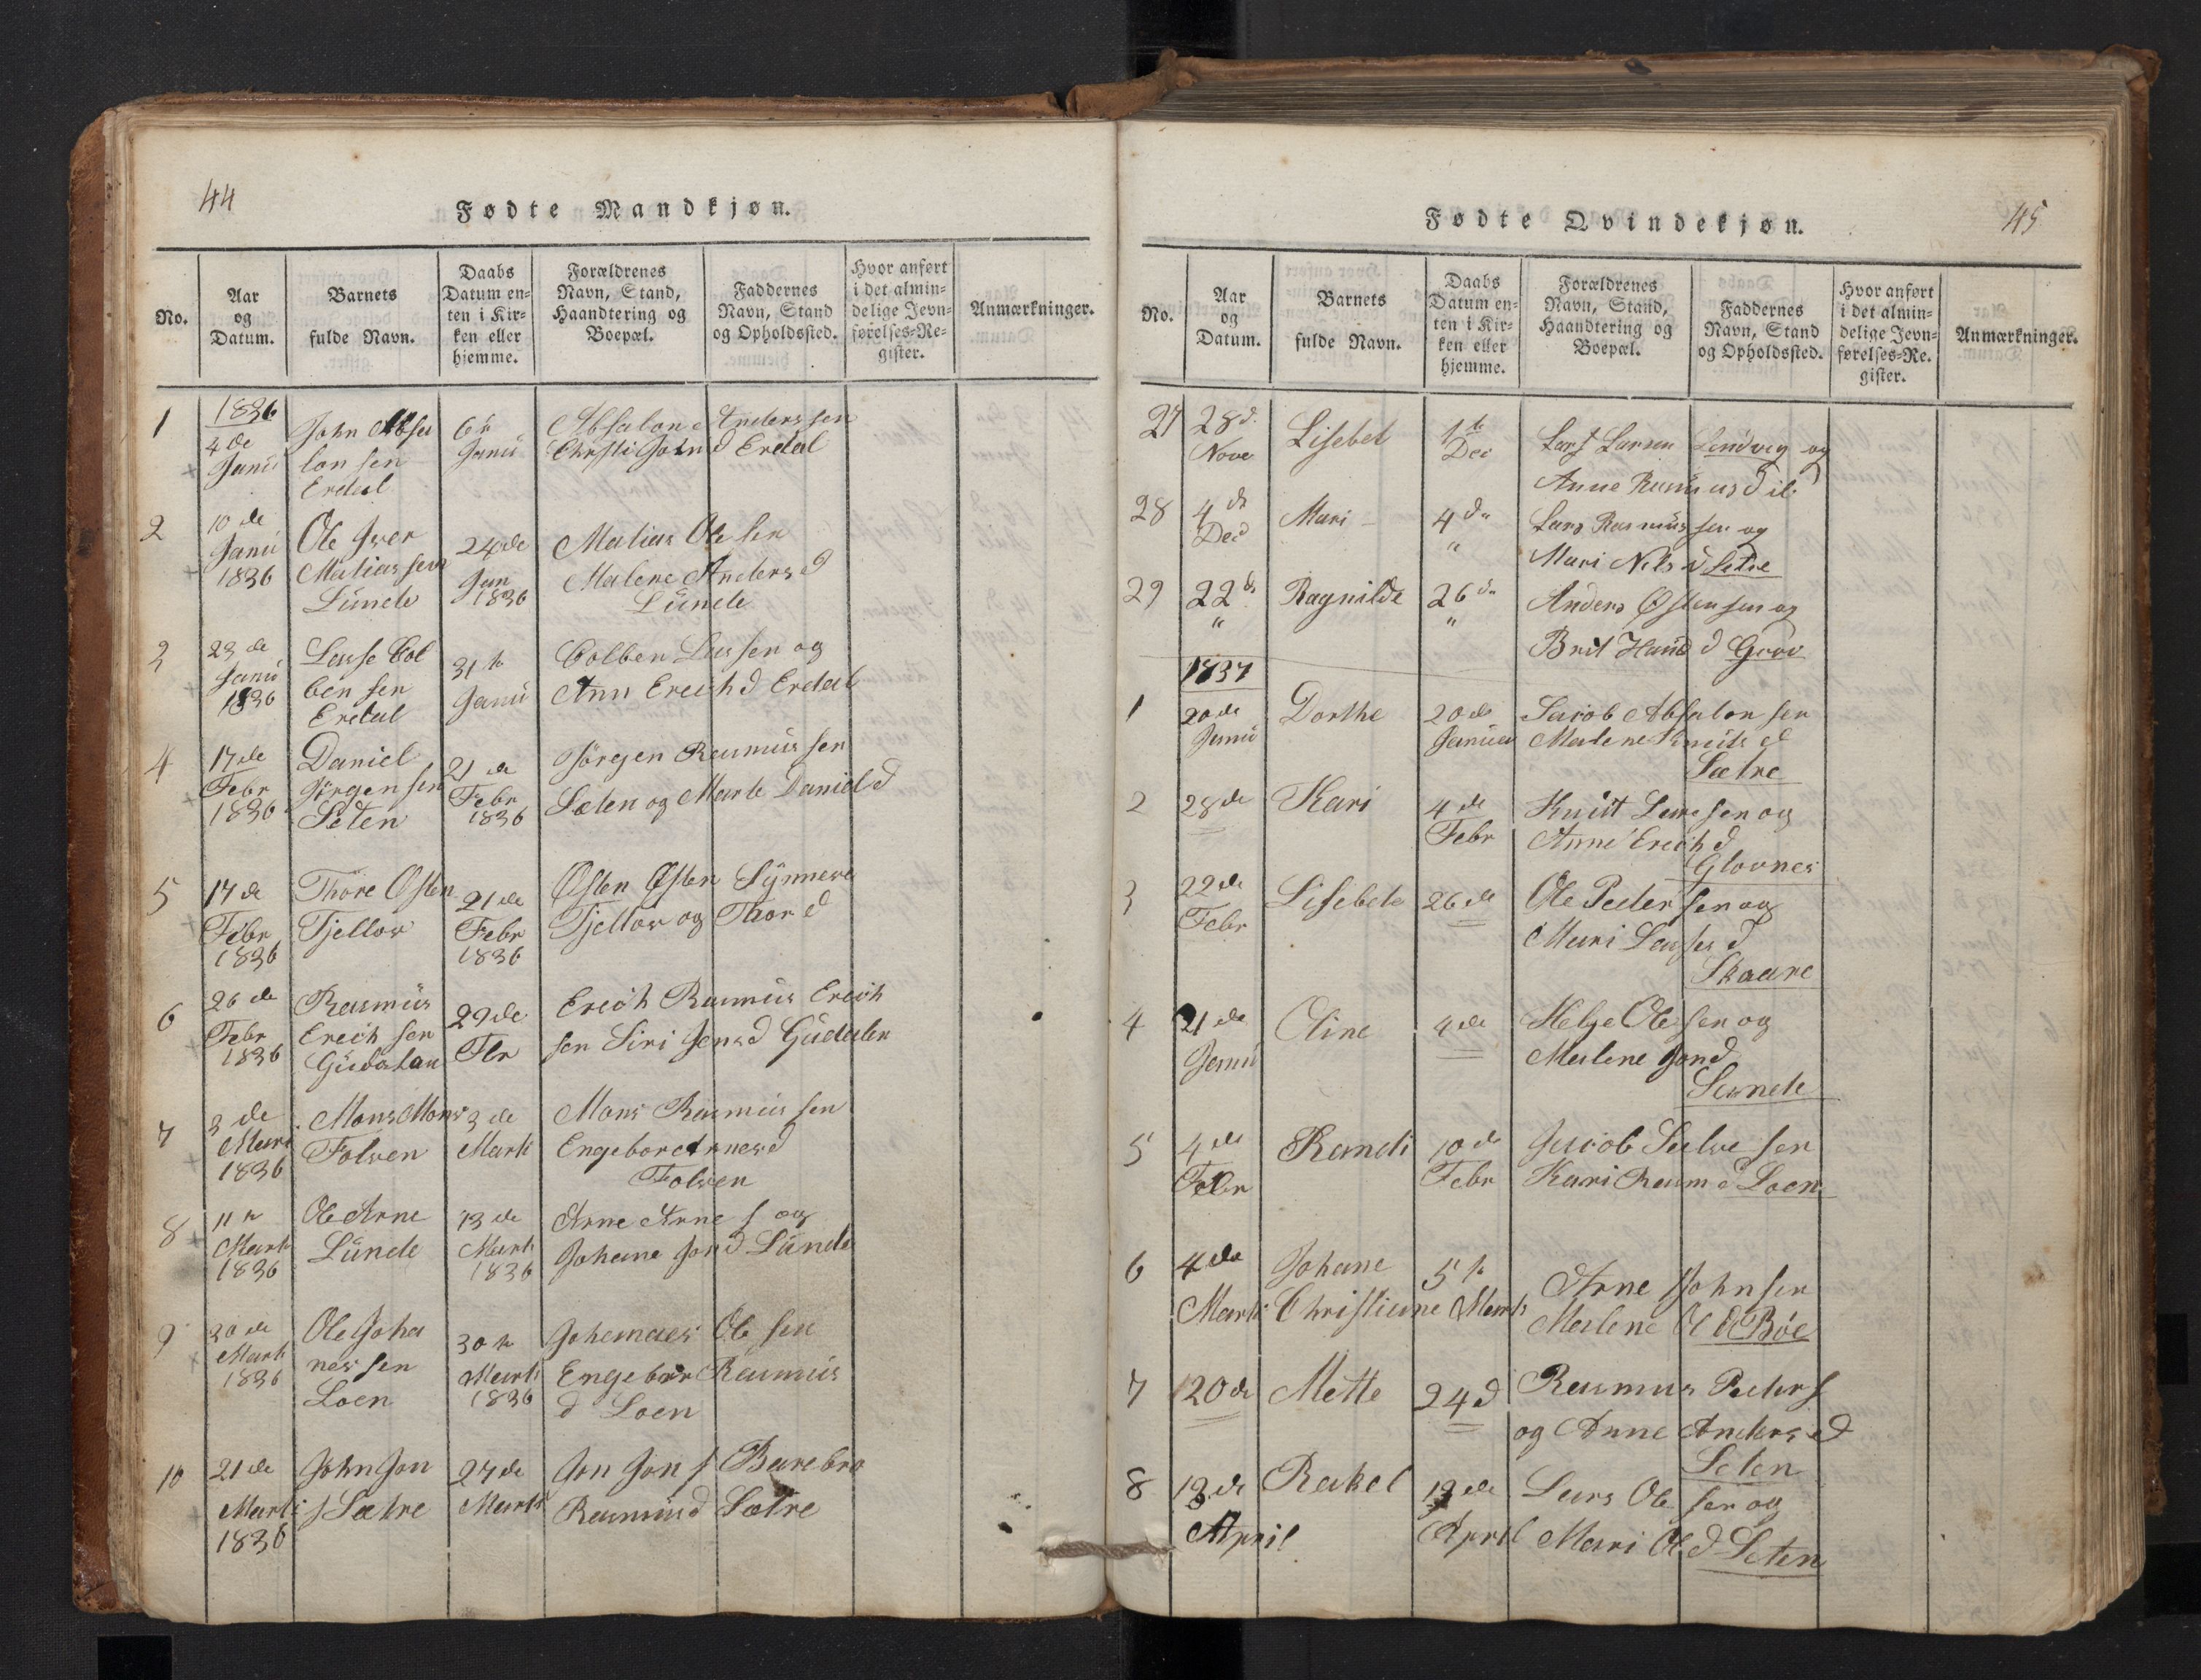 44
Fødte Mandkjøn.
No.
Aar
og
Datum.
Barnets
fulde Navn.
Daabs
Datum en-
ten i Kir-
ken eller
hjemme.
Forældrenes
Navn, Stand,
Haandtering og
Boepæl.
Faddernes
Navn, Stand
og Opholdssted.
Hvor anført
i det almin-
delige Jevn-
førelses-Re-
gister.
Anmærkninger.
1
1836
4 de
Janü
John Absa
lon sen
Erdal
6 te
Janü
Absalon Anderssen
Christi John d Erdal
2
10 de
Janü
1836
Ole Iver
Matias sen
Lünde
24 de
Jan
1836
Matias Ole sen
Malene Anders d
Lünde
3
23 de
Janü
1836
Lasse Col
ben sen
Erdal
31 te
Janü
Colben Lassen og
Ann Erich d Erdal
4
17 de
Febr
1836
Daniel
Jörgen sen
Seten
21 de
Febr
1836
Jörgen Rasmüs sen
Sæten og Marte Daniel d
5
17 de
Febr
1836
Thore Østen
Tjellow
21 de
Febr
1836
Østen Østen Synneve
Tjellow og Thor d
6
26 de
Febr
1836
Rasmüs
Erich sen
29 de
Erich Rasmüs Erich
sen Siri Jens d
7
3 de
Marti
1836
Mons Mons
Folven
3 de
Marti
Mons Rasmüs sen
Folven
8
11 te
Marti
1836
Ole Arne
Lünde
13 de
Marti
1836
Arne Arne s og
Johane Jon d Lünde
9
30 de
Marti
1836
Ole Joha
nes sen
Loen
30 te
Marti
1836
Johanaes Ole sen
Engebor Rasmüs
d Loen
10
21 de
Marti
1836
John Jon
s Sætre
27 de
Marti
Jon Jon s Barebra
Rasmüs d Sætre
45
Fødte Qvindekjøn.
No.
Aar
og
Datum.
Barnets
fulde Navn.
Daabs
Datum en-
ten i Kir-
ken eller
hjemme.
Forældrenes
Navn, Stand,
Haandtering og
Boepæl.
Faddernes
Navn, Stand
og Opholdssted.
Hvor anført
i det almin-
delige Jevn-
førelses-Re-
gister.
Anmærkninger.
27
28 d.
Nove
Lisebet
1 te
Dec
Lars Larsen Lindvig og
Anne Rasmüs d
28
4 de
Dec
Mari
4 de
"
Lars Rasmüs sen og
Mari Nils d Setre
29
22 de
"
Ragnilde
26 de
"
Anders Østensen og
Brit Hans d Grov
1837
1
20 de
Janü
Dorthe
20 de
Janüar
Jacob Absalon sen
Malene Knüts d
Sætre
2
28 de
Kari
4 de
Febr
Knüt Lassesen og
Anne Erich d
Glovnes
3
22 de
Febr
Lisebete
26 de
Ole Peder sen og
Mari Lasses d
Skaare
4
21 de
Janü
Oline
4 de
Helge Ole sen og
Malene Jon d
Sande
5
4 de
Febr
Randi
10 d
Febr
Jacob sen
Kari Rasm d Loen
6
4 de
Marti
Johane
Christianne
5 te
Marti
Arne Johnsen
Malene Ol d Böe
7
20 de
Mette
24 d
Rasmus Peders
og Anne Anders d
Seten
8
13 de
April
Rakel
13 de
April
Lars Ole sen og
Mari Ol d Seten